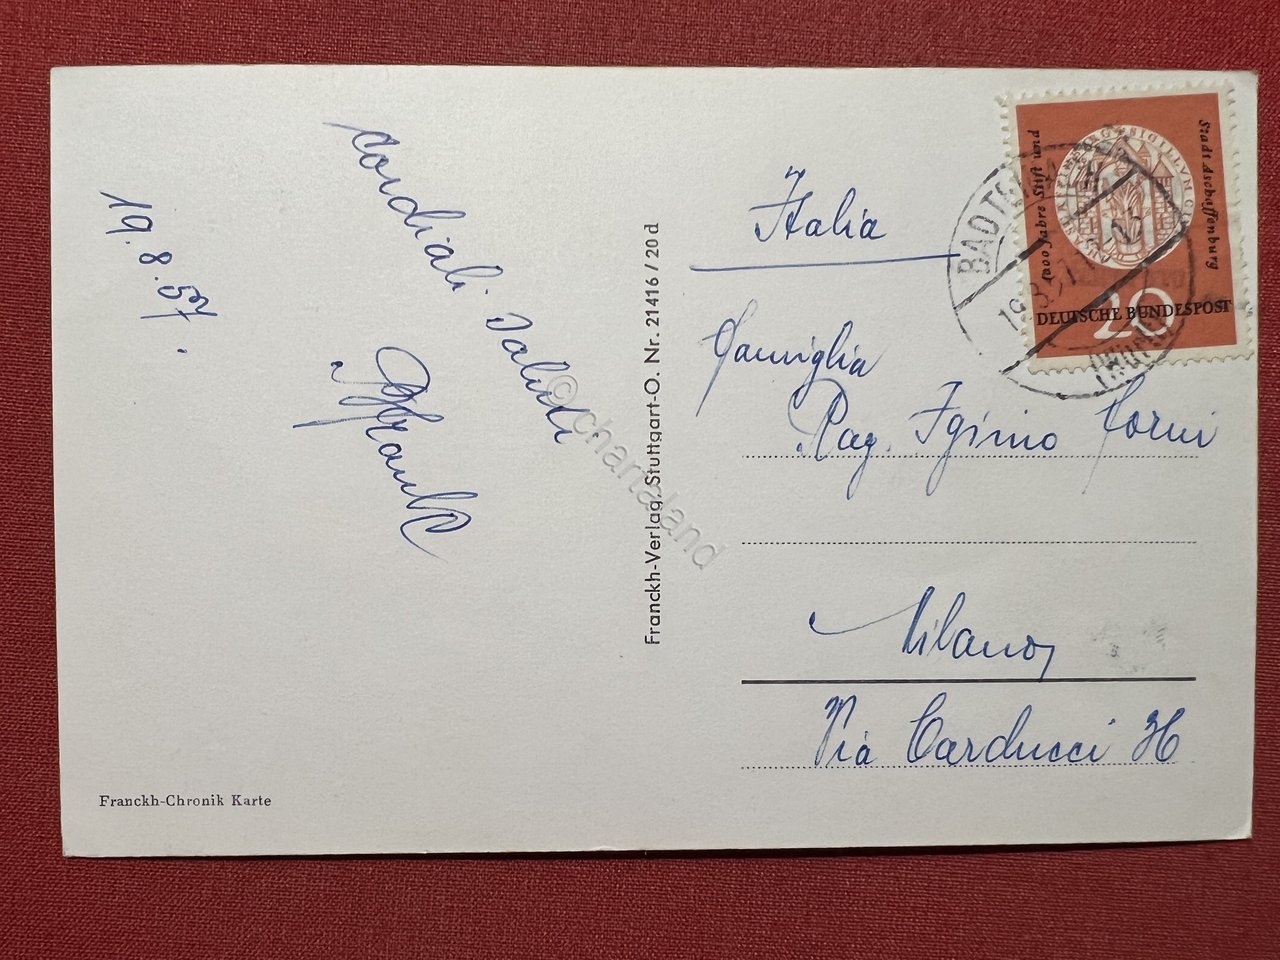 19.8.57.
Cordiali saluti
Franckh-Verlag, Stuttgart-O. Nr. 21416 / 20 d
Franckh-Chronik Karte
1000 Jahre Stift und
Stadt Aschaffenburg
SIGILLVM
20
DEUTSCHE BUNDESPOST
BAD
19.8.57
(Württ)
Italia
Famiglia
Rag. Iginio Corni
Milano
Via Carducci
© chartaland